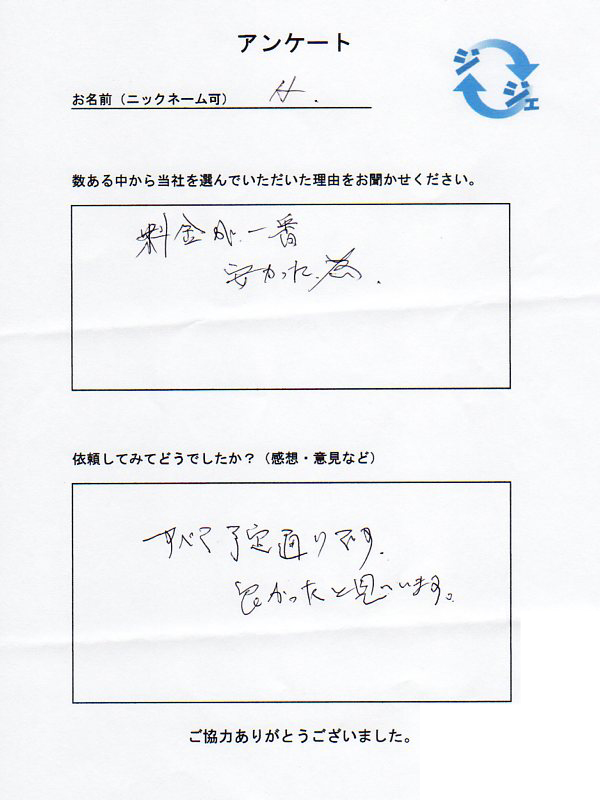 アンケート
ジ
ジェ
お名前（ニックネーム可） H.
数ある中から当社を選んでいただいた理由をお聞かせください。
料金が、一番
安かった、為.
依頼してみてどうでしたか？（感想・意見など）
すべて予定通りです.
良かったと思います。
ご協力ありがとうございました。